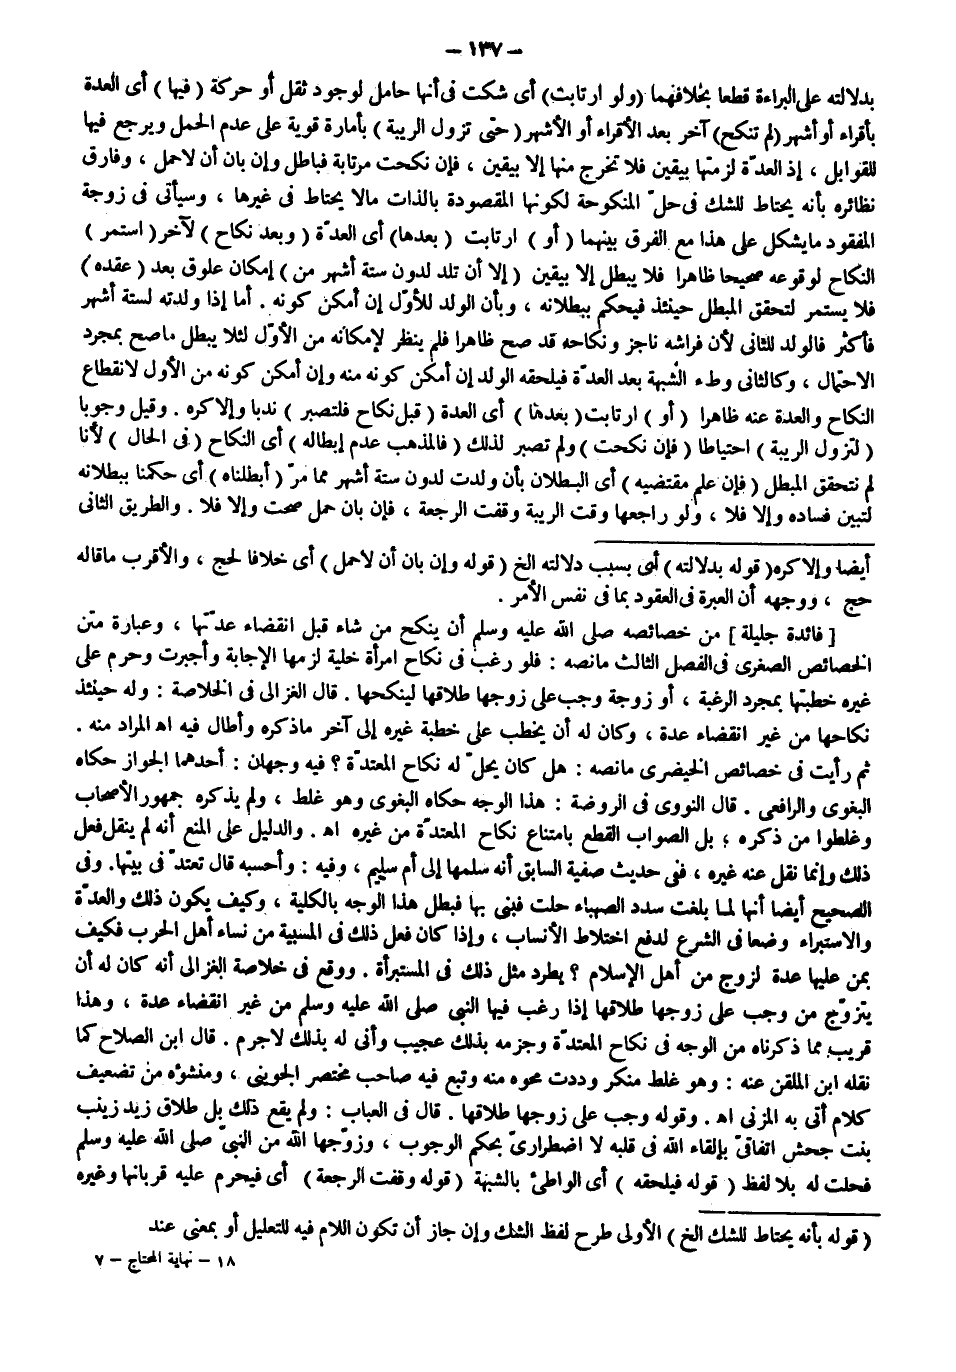 – ١٣٧ –
بدلالته على البراءة قطعا بخلافهما (ولو ارتابت) أى شكت فى أنها حامل لوجود ثقل أو حركة ( فيها ) أى العدة
بأقراء أو أشهر (لم تنكح) آخر بعد الأقراء أو الأشهر (حتى تزول الريبة ) بأمارة قوية على عدم الحمل ويرجع فيها
للقوابل ، إذ العدّة لزمتها بيقين فلا تخرج منها إلا بيقين ، فإن نكحت مرتابة فباطل وإن بان أن لاحمل ، وفارق
نظائره بأنه يحتاط للشك فى حلّ المنكوحة لكونها المقصودة بالذات مالا يحتاط فى غيرها ، وسيأتى فى زوجة
المفقود مايشكل على هذا مع الفرق بينهما ( أو ) ارتابت ( بعدها) أى العدّة ( وبعد نكاح ) لآخر( استمر )
النكاح لوقوعه صحيحا ظاهرا فلا يبطل إلا بيقين ( إلا أن تلد لدون ستة أشهر من ) إمكان علوق بعد ( عقده )
فلا يستمر لتحقق المبطل حينئذ فيحكم ببطلانه ، وبأن الولد للأوّل إن أمكن كونه . أما إذا ولدته لستة أشهر
فأكثر فالولد للثانى لأن فراشه ناجز ونكاحه قد صح ظاهرا فلم ينظر لإمكانه من الأوّل لئلا يبطل ماصح بمجرد
الاحتمال ، وكالثانى وطء الشبهة بعد العدّة فيلحقه الولد إن أمكن كونه منه وإن أمكن كونه من الأول لانقطاع
النكاح والعدة عنه ظاهرا ( أو ) ارتابت( بعدها ) أى العدة ( قبل نكاح فلتصبر ) ندبا وإلا كره . وقيل وجوبا
( لتزول الريبة ) احتياطا ( فإن نكحت ) ولم تصبر لذلك ( فالمذهب عدم إبطاله ) أى النكاح ( فى الحال ) لأنا
لم نتحقق المبطل ( فإن علم مقتضيه ) أى البطلان بأن ولدت لدون ستة أشهر مما مرّ ( أبطلناه ) أى حكمنا ببطلانه
لتبين فساده وإلا فلا ، ولو راجعها وقت الريبة وقفت الرجعة ، فإن بان حمل صحت وإلا فلا . والطريق الثانى
أيضا وإلا كره( قوله بدلالته ) أى بسبب دلالته الخ ( قوله وإن بان أن لاحمل ) أى خلافا لحج ، والأقرب ماقاله
حج ، ووجهه أن العبرة فى العقود بما فى نفس الأمر .
[ فائدة جليلة ] من خصائصه صلى الله عليه وسلم أن ينكح من شاء قبل انقضاء عدّتها ، وعبارة متن
الخصائص الصغرى فى الفصل الثالث مانصه : فلو رغب فى نكاح امرأة خلية لزمها الإجابة وأجبرت وحرم على
غيره خطبتها بمجرد الرغبة ، أو زوجة وجب على زوجها طلاقها لينكحها . قال الغزالى فى الخلاصة : وله حينئذ
نكاحها من غير انقضاء عدة ، وكان له أن يخطب على خطبة غيره إلى آخر ماذكره وأطال فيه اه المراد منه .
ثم رأيت فى خصائص الخيضرى مانصه : هل كان يحلّ له نكاح المعتدّة ؟ فيه وجهان : أحدهما الجواز حكاه
البغوى والرافعى . قال النووى فى الروضة : هذا الوجه حكاه البغوى وهو غلط ، ولم يذكره جمهور الأصحاب
وغلطوا من ذكره ؛ بل الصواب القطع بامتناع نكاح المعتدّة من غيره اه . والدليل على المنع أنه لم ينقل فعل
ذلك وإنما نقل عنه غيره ، ففى حديث صفية السابق أنه سلمها إلى أم سليم ، وفيه : وأحسبه قال تعتدّ فى بيتها. وفى
الصحيح أيضا أنها لما بلغت سدد الصهباء حلت فبنى بها فبطل هذا الوجه بالكلية ، وكيف يكون ذلك والعدّة
والاستبراء وضعا فى الشرع لدفع اختلاط الأنساب ، وإذا كان فعل ذلك فى المسبية من نساء أهل الحرب فكيف
بمن عليها عدة لزوج من أهل الإسلام ؟ يطرد مثل ذلك فى المستبرأة . ووقع فى خلاصة الغزالى أنه كان له أن
يتزوّج من وجب على زوجها طلاقها إذا رغب فيها النبى صلى الله عليه وسلم من غير انقضاء عدة ، وهذا
قريب مما ذكرناه من الوجه فى نكاح المعتدّة وجزمه بذلك عجيب وأنى له بذلك لاجرم . قال ابن الصلاح كما
نقله ابن الملقن عنه : وهو غلط منكر وددت محوه منه وتبع فيه صاحب مختصر الجوينى ، ومنشؤه من تضعيف
كلام أتى به المزنى اه . وقوله وجب على زوجها طلاقها . قال فى العباب : ولم يقع ذلك بل طلاق زيد زينب
بنت جحش اتفاقىّ بإلقاء الله فى قلبه لا اضطرارىّ بحكم الوجوب ، وزوّجها الله من النبىّ صلى الله عليه وسلم
فحلت له بلا لفظ ( قوله فيلحقه ) أى الواطئ بالشبهة ( قوله وقفت الرجعة ) أى فيحرم عليه قربانها وغيره
( قوله بأنه يحتاط للشك الخ ) الأولى طرح لفظ الشك وإن جاز أن تكون اللام فيه للتعليل أو بمعنى عند
١٨ – نهاية المحتاج – ٧